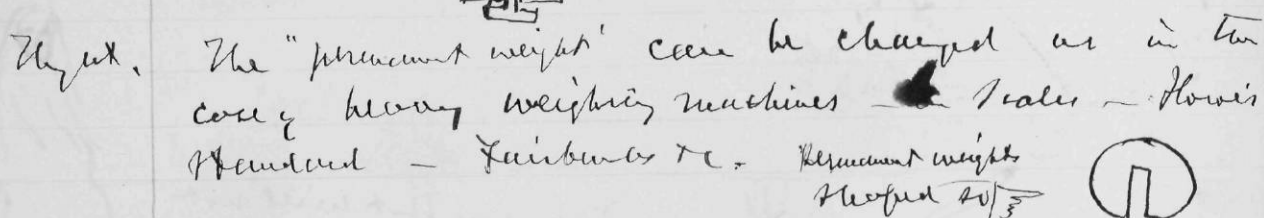 The "permanent weight" can be changed as in the
case of heavy weighing machines — scales — Howe's
Standard — Fairbanks &c. Permanent weights
shaped so